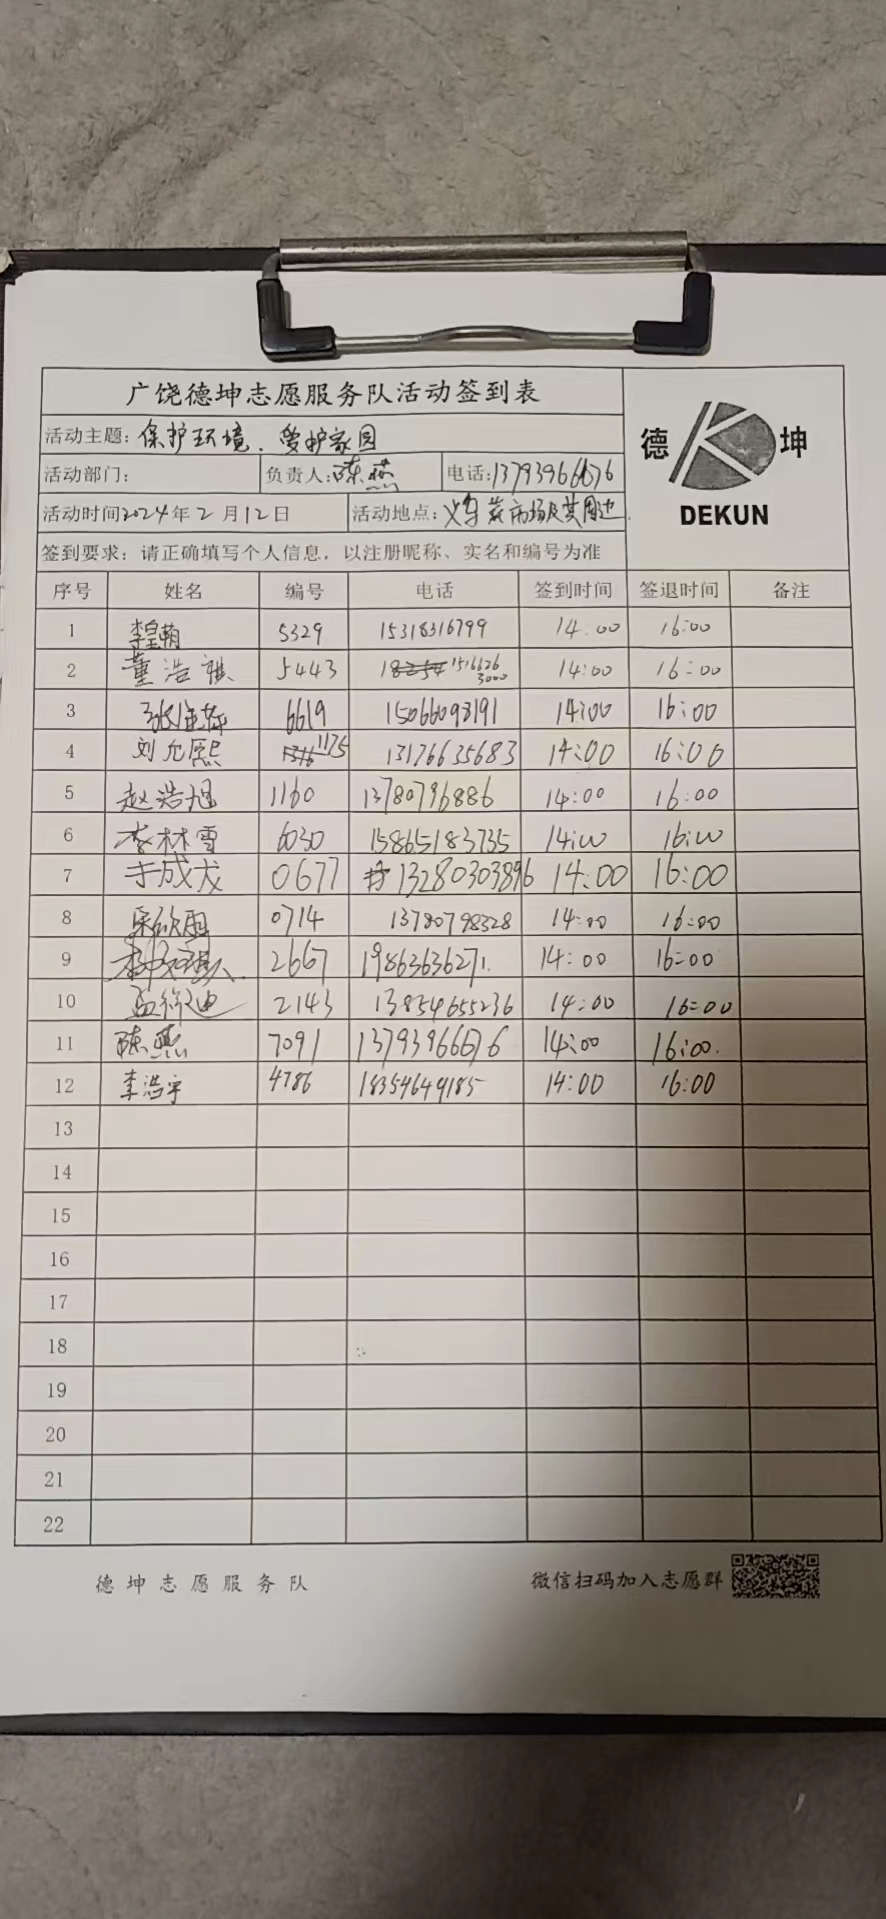 广饶德坤志愿服务队活动签到表
德 坤
DEKUN
活动主题: 保护环境、爱护家园
活动部门: 负责人: 陈燕 电话: 13793966676
活动时间2024年2月12日 活动地点: 蔬市场及其周边
签到要求: 请正确填写个人信息, 以注册昵称、实名和编号为准
序号 姓名 编号 电话 签到时间 签退时间 备注
1 李 5329 15318316799 14:00 16:00
2 董浩祺 5443 15166263000 14:00 16:00
3 张 6619 15066098191 14:00 16:00
4 刘允熙 1175 13176635683 14:00 16:00
5 赵浩旭 1160 13780796886 14:00 16:00
6 李林雪 6030 15865183735 14:00 16:00
7 于成龙 0677 13280303896 14:00 16:00
8 0714 13780798328 14:00 16:00
9 2667 19863636271. 14:00 16:00
10 孟 迪 2143 13854655236 14:00 16:00
11 陈燕 7091 13793966676 14:00 16:00.
12 李浩宇 4786 18354649185 14:00 16:00
13
14
15
16
17
18
19
20
21
22
德坤志愿服务队 微信扫码加入志愿群